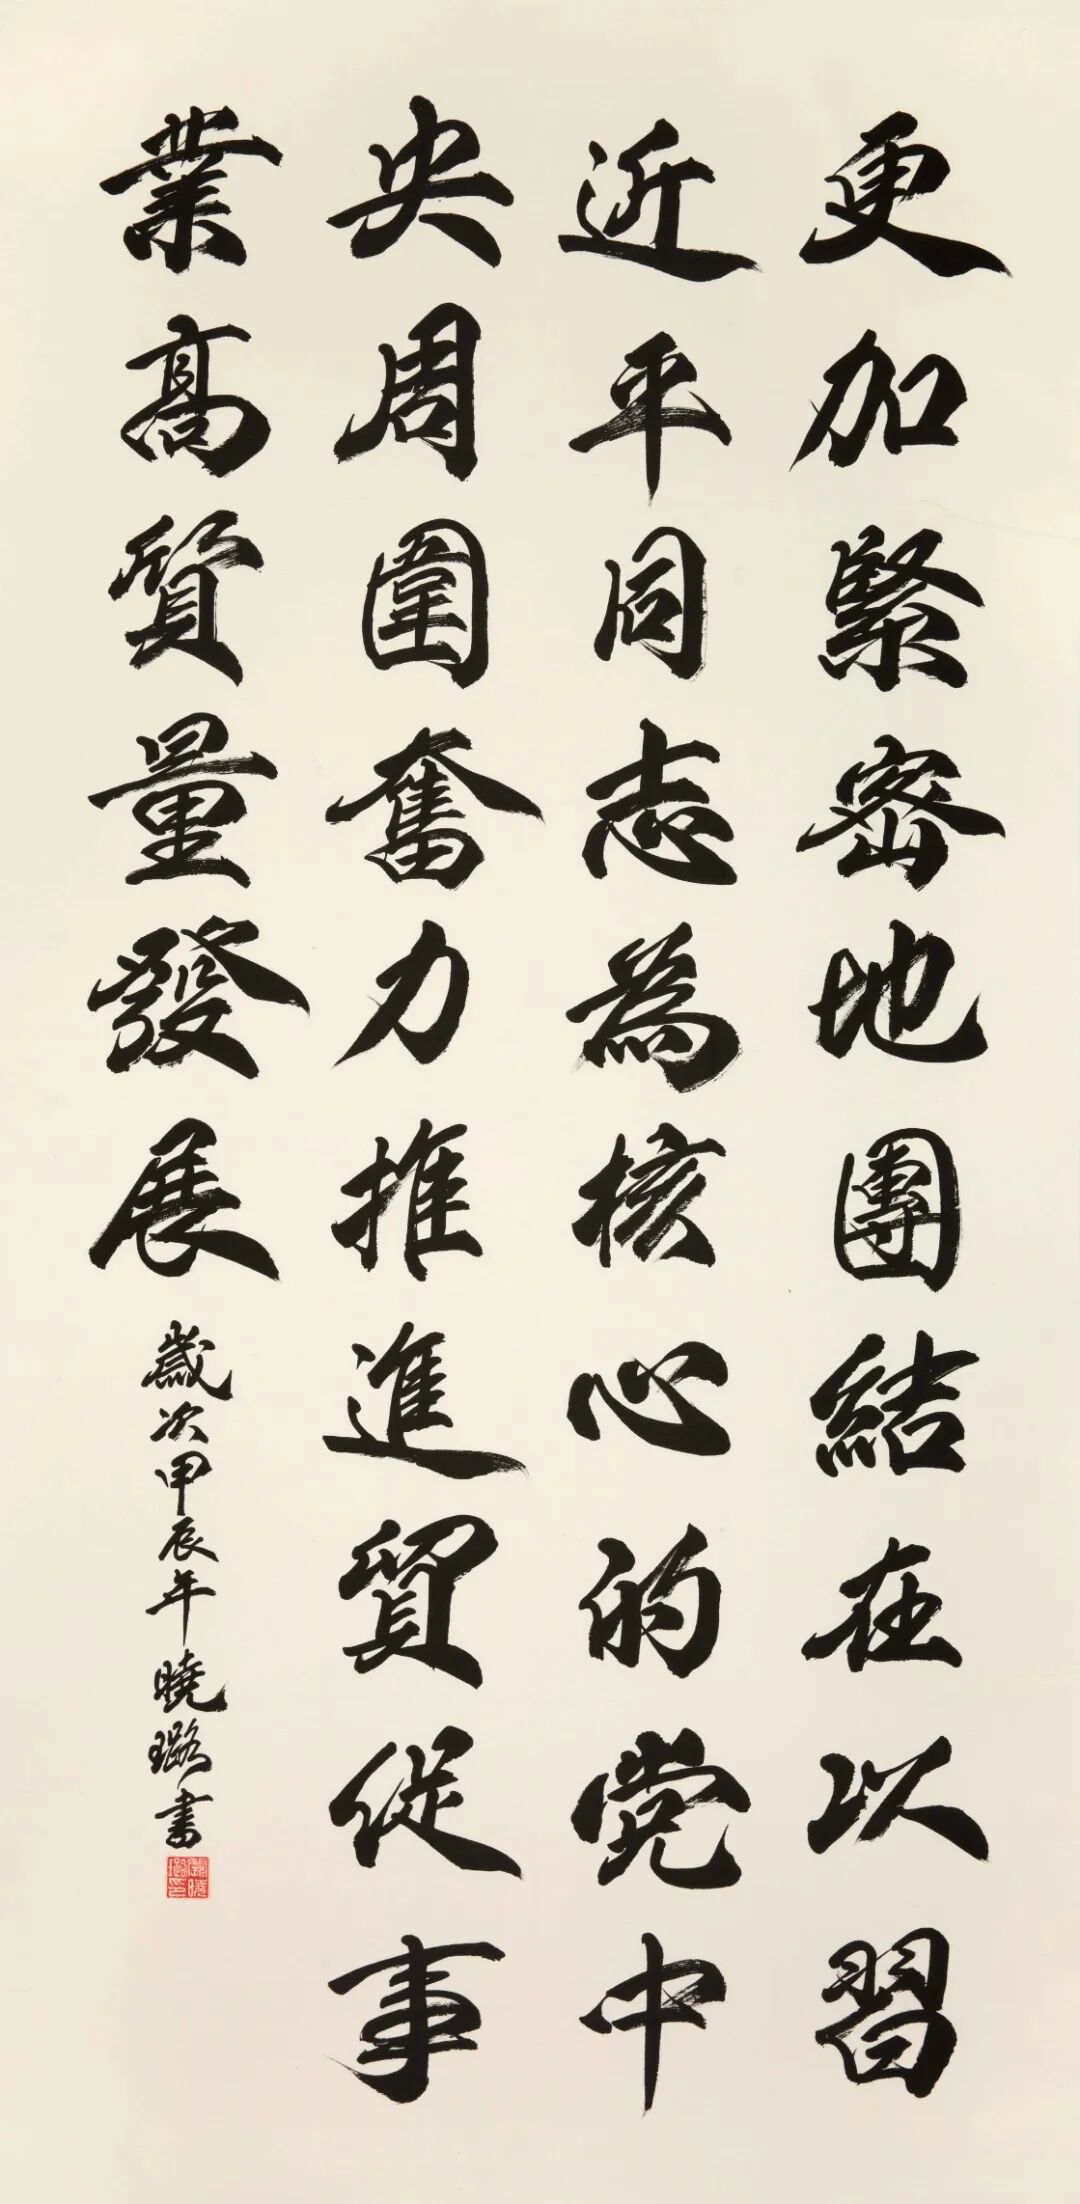 更加緊密地團結在以習
近平同志為核心的党中
央周圍奮力推進貿促事
業髙質量發展
歲次甲辰年曉璐書